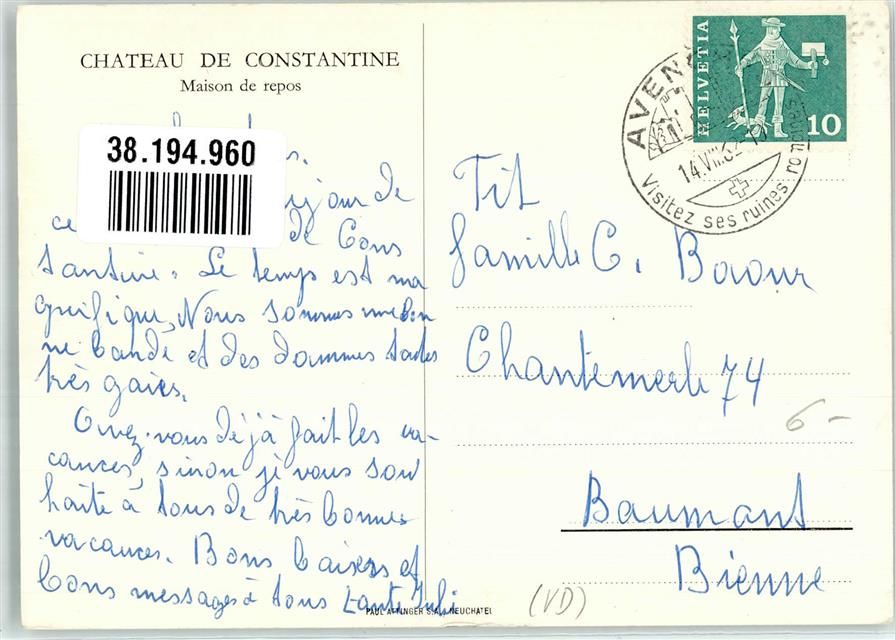 CHATEAU DE CONSTANTINE
Maison de repos
38.194.960
de
ce de Cons
tantine. Le temps est ma
gnifique, Nous sommes une bon
ne bande et des dammes toutes
très gaies.
Avez-vous déjà fait les va-
cances, sinon je vous sou
haite à tous de très bonnes
vacances. Bons baisers et
bons messages à tous tante Juli
PAUL ATTINGER S.A., NEUCHATEL
HELVETIA
10
AVENCHES
14.VIII.62
Visitez ses ruines romaines
Tit
famille C. Bovour
Chantemerle 74
6-
Baumont
Bienne
(VD)